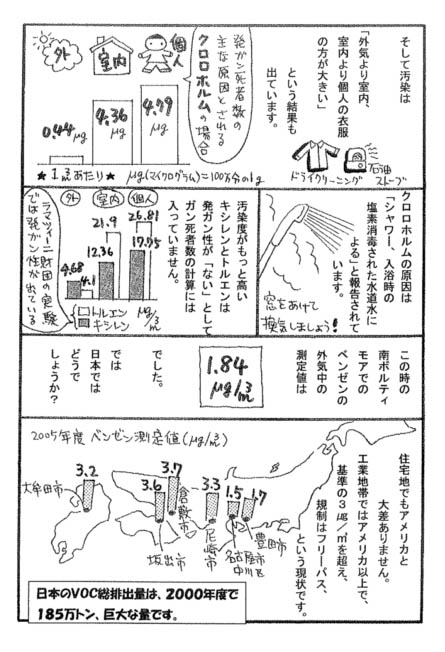 そして汚染は
「外気より室内、
室内より個人の衣服
の方が大きい」
という結果も
出ています。
ドライクリーニング
石油
ストーブ
発がん死者数の
主な原因とされる
クロロホルムの場合
外
室内
個人
0.44
μg
4.36
μg
4.79
μg
★1㎥あたり★
μg(マイクログラム)=100万分の1g
クロロホルムの原因は
「シャワー、入浴時の
塩素消毒された水道水に
よる」と報告されて
います。
窓をあけて
換気しましょう!
汚染度がもっと高い
キシレンとトルエンは
発ガン性が「ない」として
ガン死者数の計算には
入っていません。
外
室内
個人
4.68
4.1
12.36
21.9
17.75
26.81
μg/㎥
トルエン
キシレン
ラマツィーニ財団の実験
では発ガン性が出ている
この時の
南ボルティ
モアでの
ベンゼンの
外気中の
測定値は
1.84
μg/㎥
でした。
では
日本では
どうで
しょうか?
住宅地でもアメリカと
大差ありません。
工業地帯ではアメリカ以上で、
基準の3㎍/㎥を超え、
規制はフリーパス、
という現状です。
2005年度 ベンゼン測定値(μg/㎥)
大牟田市
3.2
3.6
坂出市
3.7
倉敷市
3.3
尼崎市
1.5
名古屋市
中川区
1.7
豊田市
日本のVOC総排出量は、2000年度で
185万トン、巨大な量です。